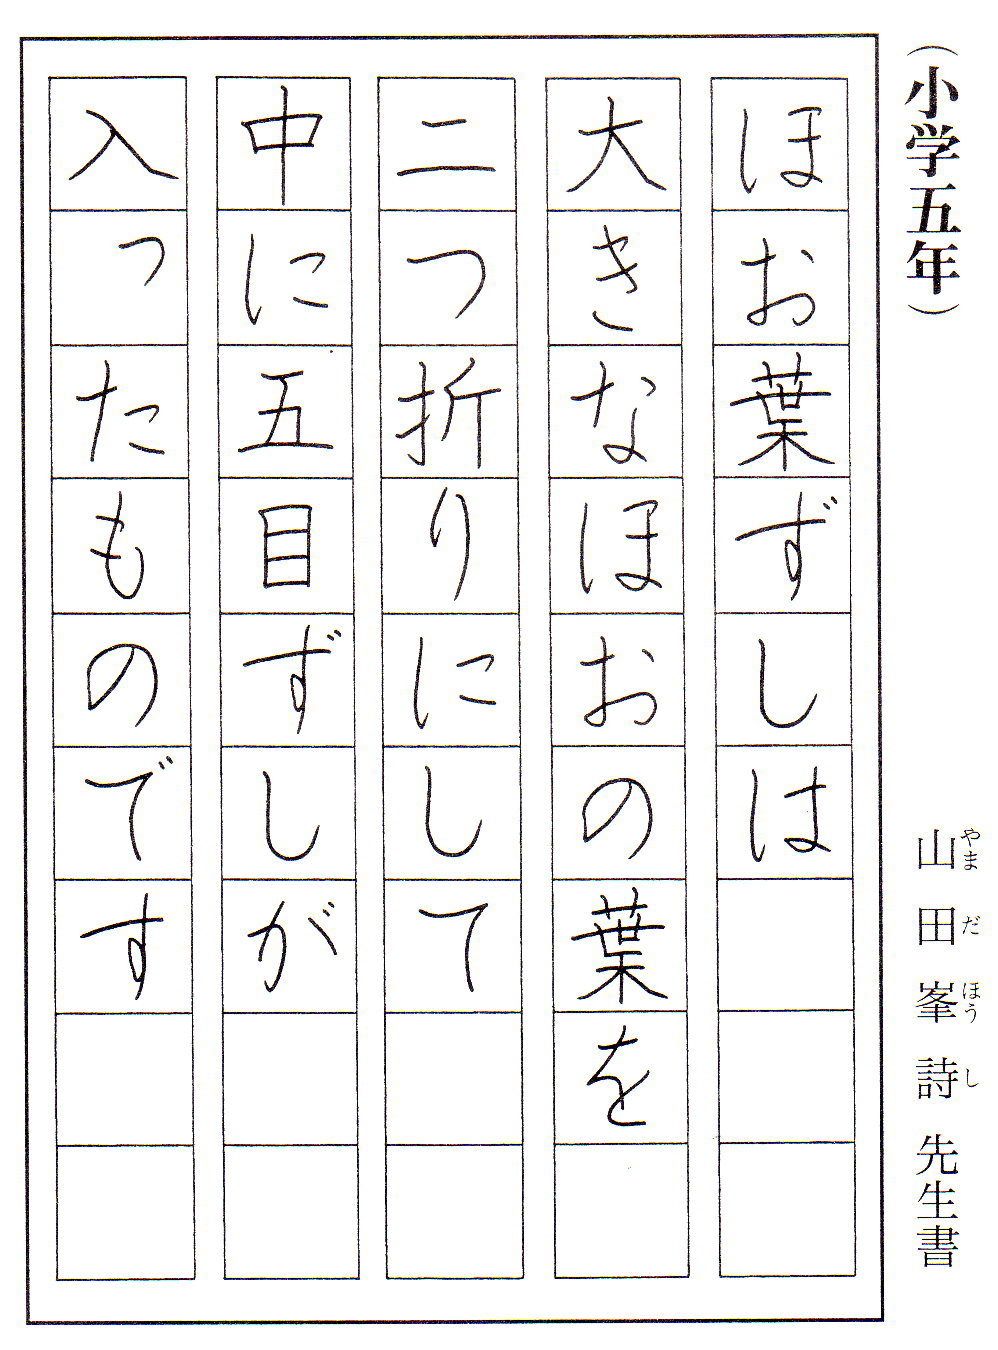 （小学五年）
山田峯詩先生書
やまだほうし
ほお葉ずしは
大きなほおの葉を
二つ折りにして
中に五目ずしが
入ったものです